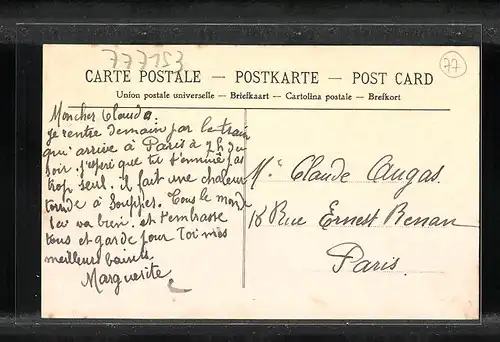 777153
77
CARTE POSTALE — POSTKARTE — POST CARD
Union postale universelle — Briefkaart — Cartolina postale — Brefkort
Mon cher Claude
je rentre demain par le train
qui arrive à Paris à 7h du
soir. j'espère que tu t'ennuie pas
trop seul. il fait une chaleur
à Souppes. Tous le monde
va bien. et t'embrasse
tous et garde pour Toi mes
meilleurs
Marguerite
Mr Claude Augas
18 Rue Ernest Renan
Paris.